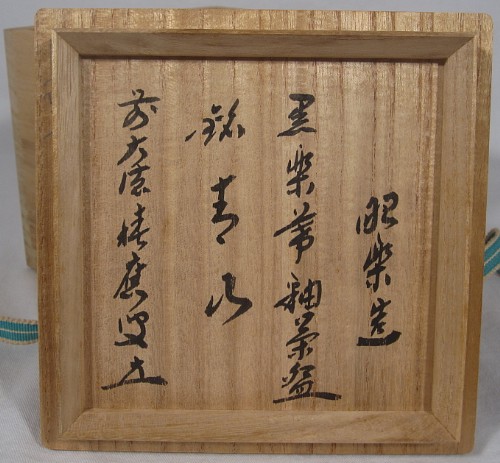 昭楽造
黒楽幕釉茶盌
銘 青山
前大徳積應叟